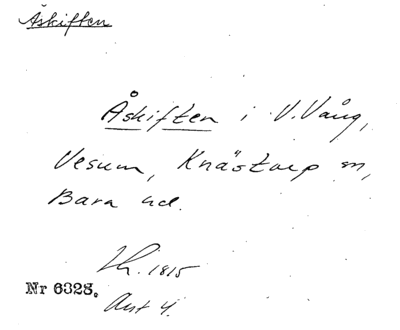 Åskiften
Åskiften i V. Vång,
Vesum, Knästorp sn,
Bara hd.
Lh. 1815
Nr 6328.
Akt 4.